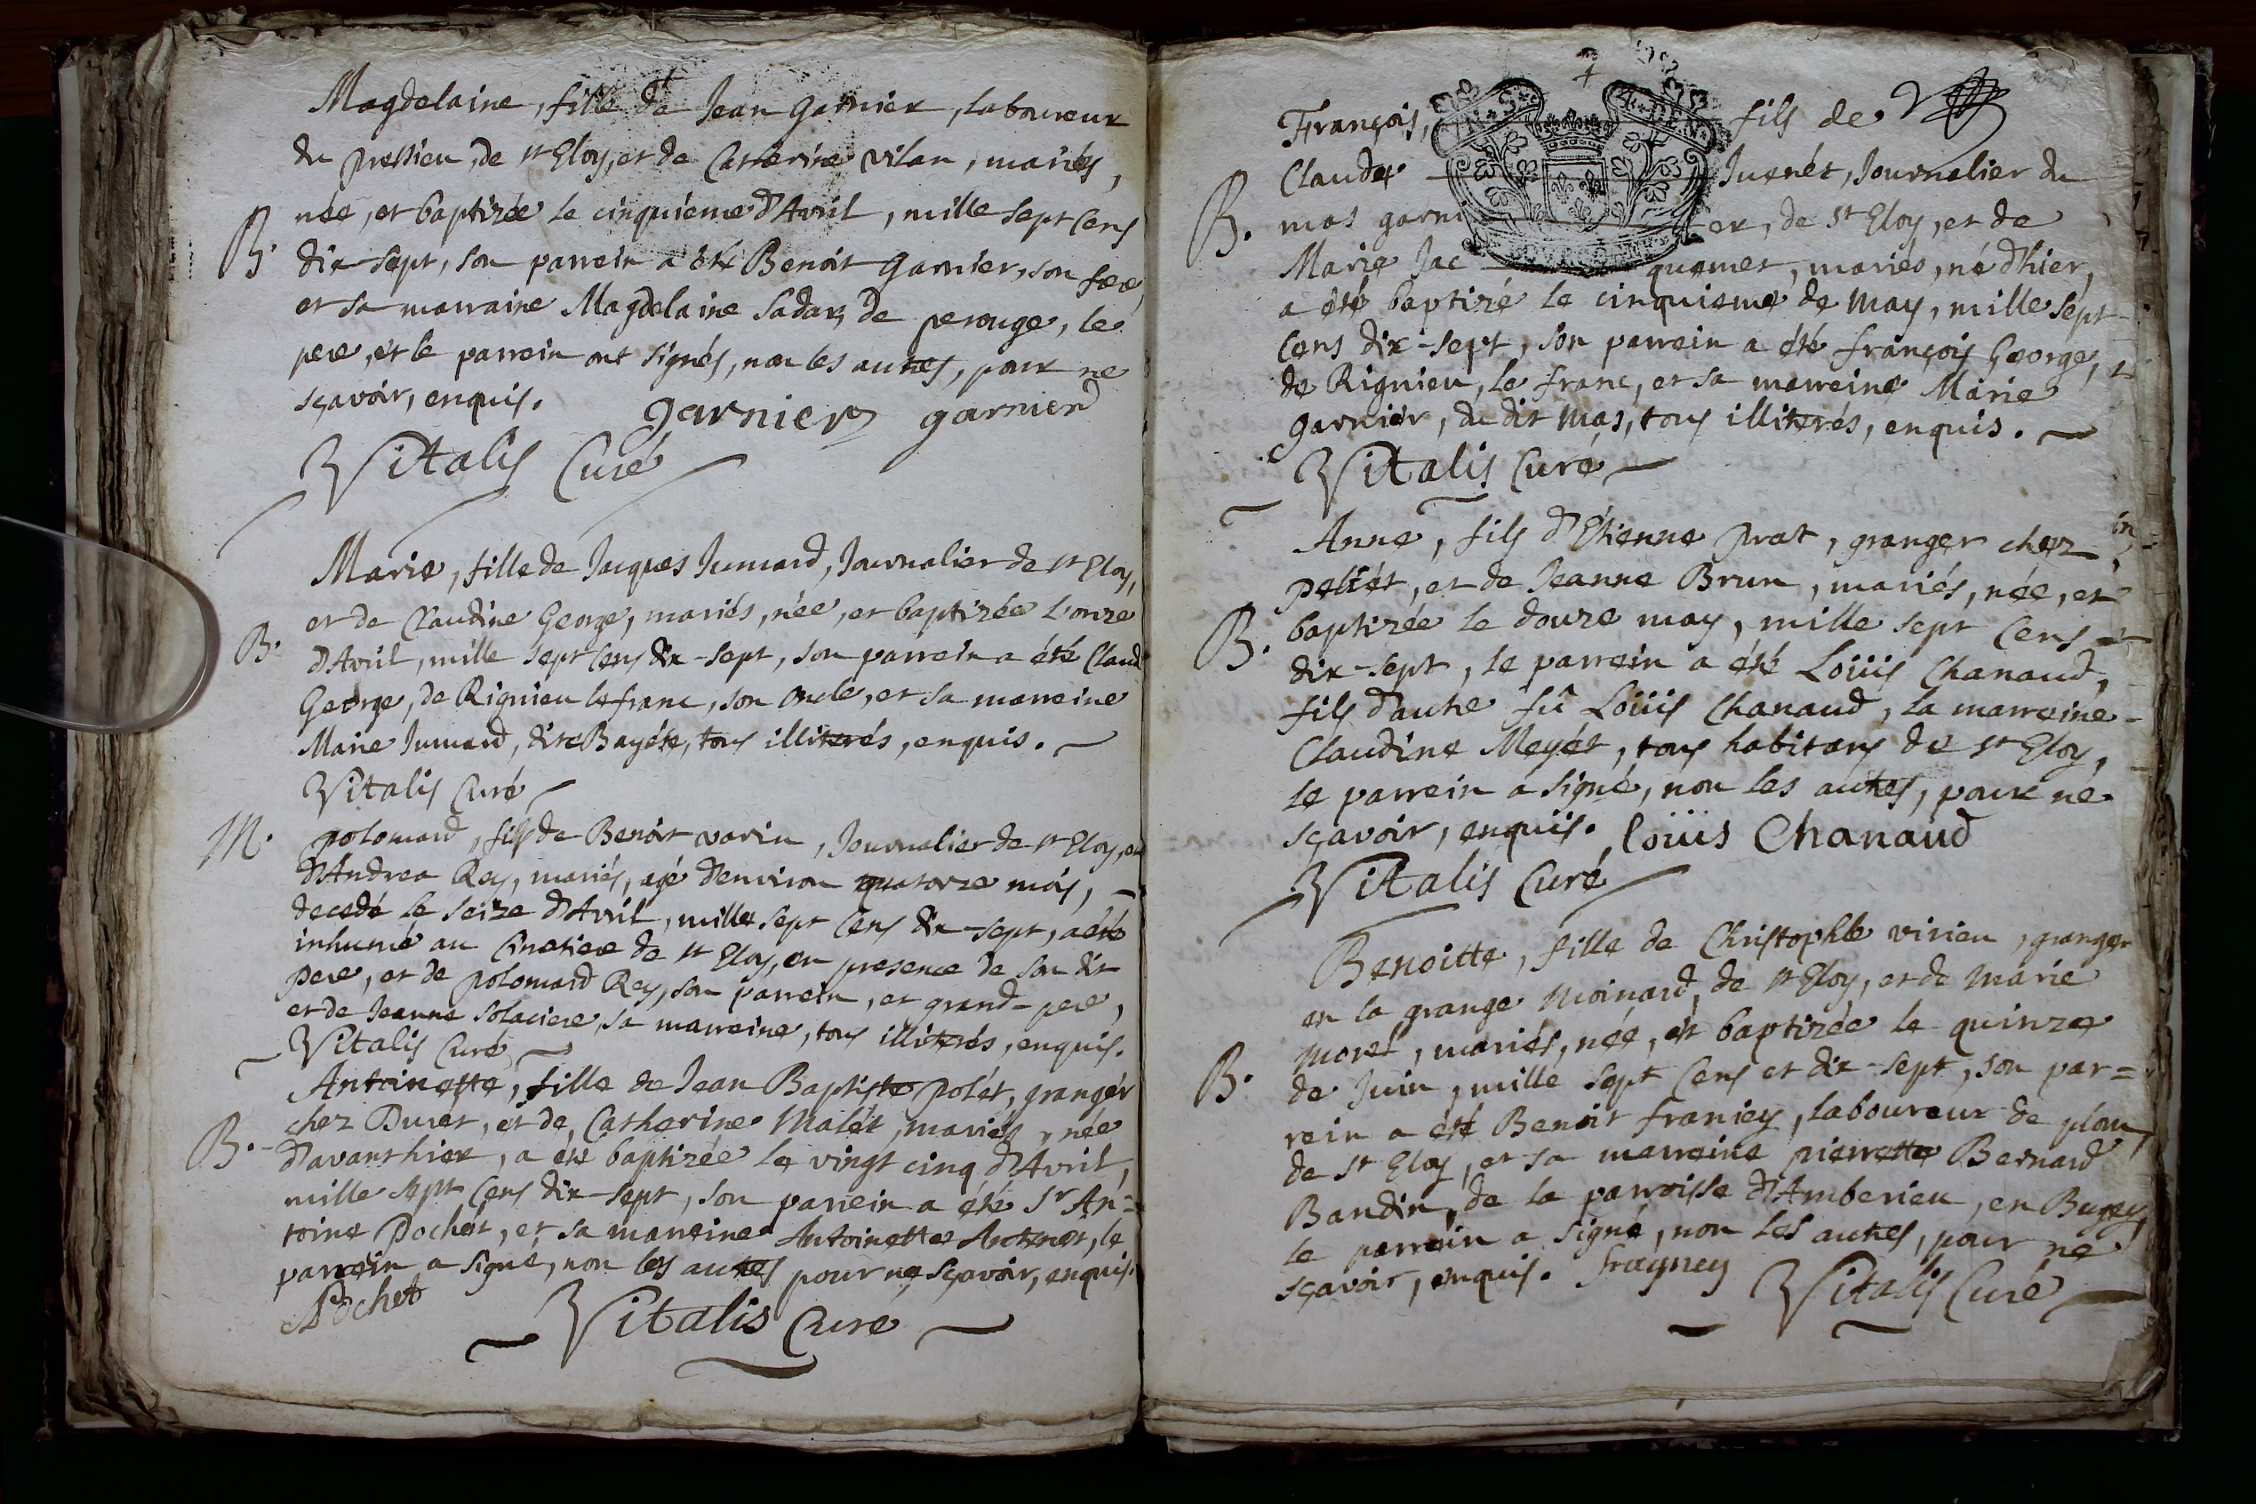 Magdelaine, fille de Jean Garnier, laboureur
du pressieu, de st Eloy, et de Catherine vilan, mariés,
B. née, et baptizée le cinquiéme d'Avril, mille sept Cens
dix-sept, son parrein a été Benoit Garnier, son frere,
et sa marraine Magdelaine Sadar, de perouge, le
pere, et le parrein ont signés, non les autres, pour ne
sçavoir, enquis. garnier garnier
Vitalis Curé
Marie, fille de Jacques Jumard, Journalier de st Eloy,
et de Claudine George, mariés, née, et baptizée L'onze
B. d'Avril, mille sept Cens dix-sept, son parrein a été Claud
George, de Rignieu le franc, son oncle, et sa marreine
Marie Jumard, dite Bayéte, tous illiterés, enquis.
Vitalis Curé
M. polomard, fils de Benoit varin, Journalier de st Eloy, et
d'Andrea Rey, mariés, agé d'environ quatorze mois,
decedé le seize d'Avril, mille sept Cens dix-sept, a été
inhumé au Cimetiere de st Eloy, en presence de son dit
pere, et de polomard Rey, son parrein, et grand-pere,
et de Jeanne Solaciere, sa marreine, tous illiterés, enquis.
Vitalis Curé
Antoinette, fille de Jean Baptiste polét, grangér
chez Duret, et de Catherine Malét, mariés, née
B. d'avant hier, a été baptizée le vingt cinq d'Avril,
mille sept Cens dix-sept, son parrein a été Sr An=
toine Pochet, et sa marreine Antoinette, le
parrein a signé, non les autes pour ne sçavoir, enquis.
Pochet
Vitalis Curé
François, fils de
Claude Juenét, Journalier du
B. mas garni er, de st Eloy, et de
Marie Jac quemet, mariés, né d'hier,
a été baptizé le cinquieme de may, mille sept
Cens dix-sept, son parrein a été françois George,
de Rignieu, le franc, et sa marreine Marie
garniér, du dit mas, tous illiterés, enquis.
Vitalis Curé
Anne, fils d'Etienne prat, granger chez
peliét, et de Jeanne Brun, mariés, née, et
B. baptizée le douze may, mille sept Cens
dix-sept, le parrein a été Loüis Chanaud,
fils d'autre fû Loüis Chanaud, la marreine
Claudine Meyét, tous habitans de st Eloy,
le parrein a signé, non les autres, pour ne
sçavoir, enquis. loüis Chanaud
Vitalis Curé
Benoitte, fille de Christophle virieu, granger
en la grange Moinard, de st Eloy, et de Marie
Morel, mariés, née, et baptizée le quinze
B. de Juin, mille sept Cens et dix-sept, son par=
rein a été Benoit franiey, laboureur de plom,
de st Eloy, et sa marreine pierrette Bernard
Bandin, de la parroisse d'Amberieu, en Bugey,
le parrein a signé, non les autres, pour ne
sçavoir, enquis. fragney Vitalis Curé